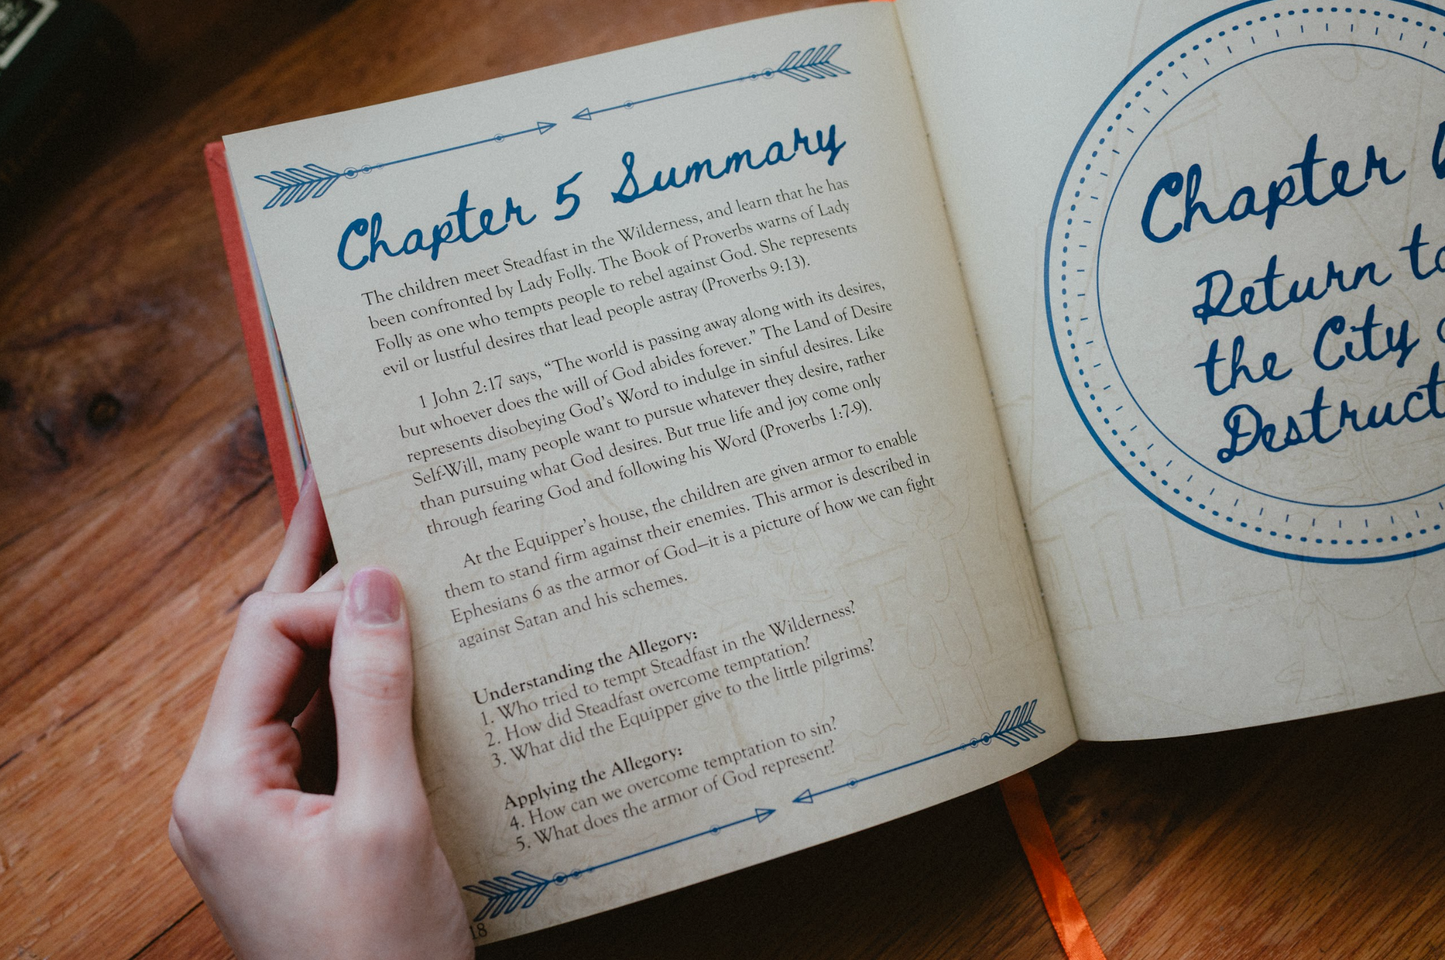 Chapter 5 Summary
The children meet Steadfast in the Wilderness, and learn that he has
been confronted by Lady Folly. The Book of Proverbs warns of Lady
Folly as one who tempts people to rebel against God. She represents
evil or lustful desires that lead people astray (Proverbs 9:13).
1 John 2:17 says, “The world is passing away along with its desires,
but whoever does the will of God abides forever.” The Land of Desire
represents disobeying God’s Word to indulge in sinful desires. Like
Self-Will, many people want to pursue whatever they desire, rather
than pursuing what God desires. But true life and joy come only
through fearing God and following his Word (Proverbs 1:7-9).
At the Equipper’s house, the children are given armor to enable
them to stand firm against their enemies. This armor is described in
Ephesians 6 as the armor of God—it is a picture of how we can fight
against Satan and his schemes.
Understanding the Allegory:
1. Who tried to tempt Steadfast in the Wilderness?
2. How did Steadfast overcome temptation?
3. What did the Equipper give to the little pilgrims?
Applying the Allegory:
4. How can we overcome temptation to sin?
5. What does the armor of God represent?
18
Chapter
Return to
the City
Destruct